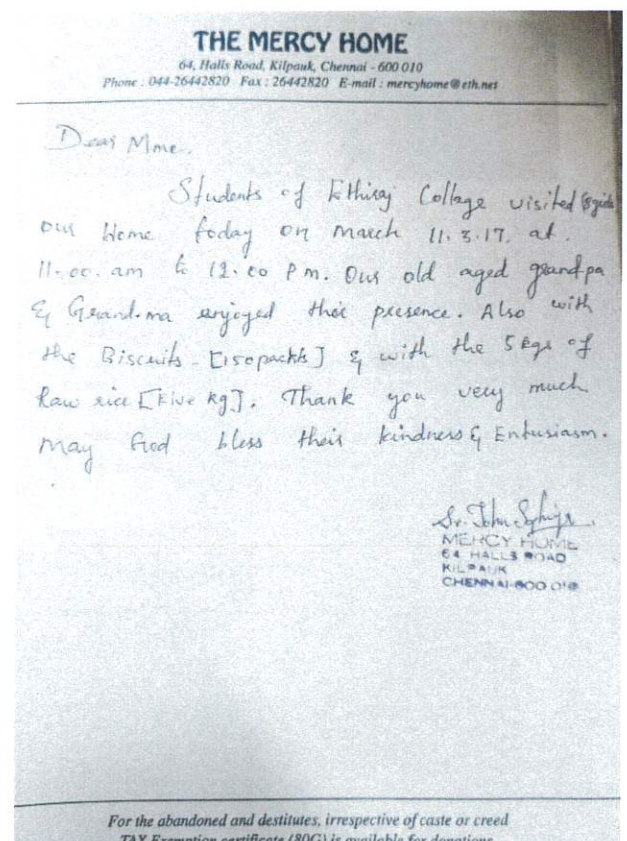 THE MERCY HOME
64, Halls Road, Kilpauk, Chennai - 600 010
Phone : 044-26442820 Fax : 26442820 E-mail : mercyhome@eth.net
Dear Mme.
Students of Ethiraj College visited
our Home today on march 11.3.17. at.
11.00. am to 12.00 Pm. Our old aged grandpa
& Grand.ma enjoyed their presence. Also with
the Biscuits - [150packts] & with the 5 kgs of
Raw rice [Five kg]. Thank you very much
may God bless their kindness & Entusiasm.
Sr. John
MERCY HOME
64 HALLS ROAD
KILPAUK
CHENNAI-600 010
For the abandoned and destitutes, irrespective of caste or creed
TAX Exemption certificate (80G) is available for donations